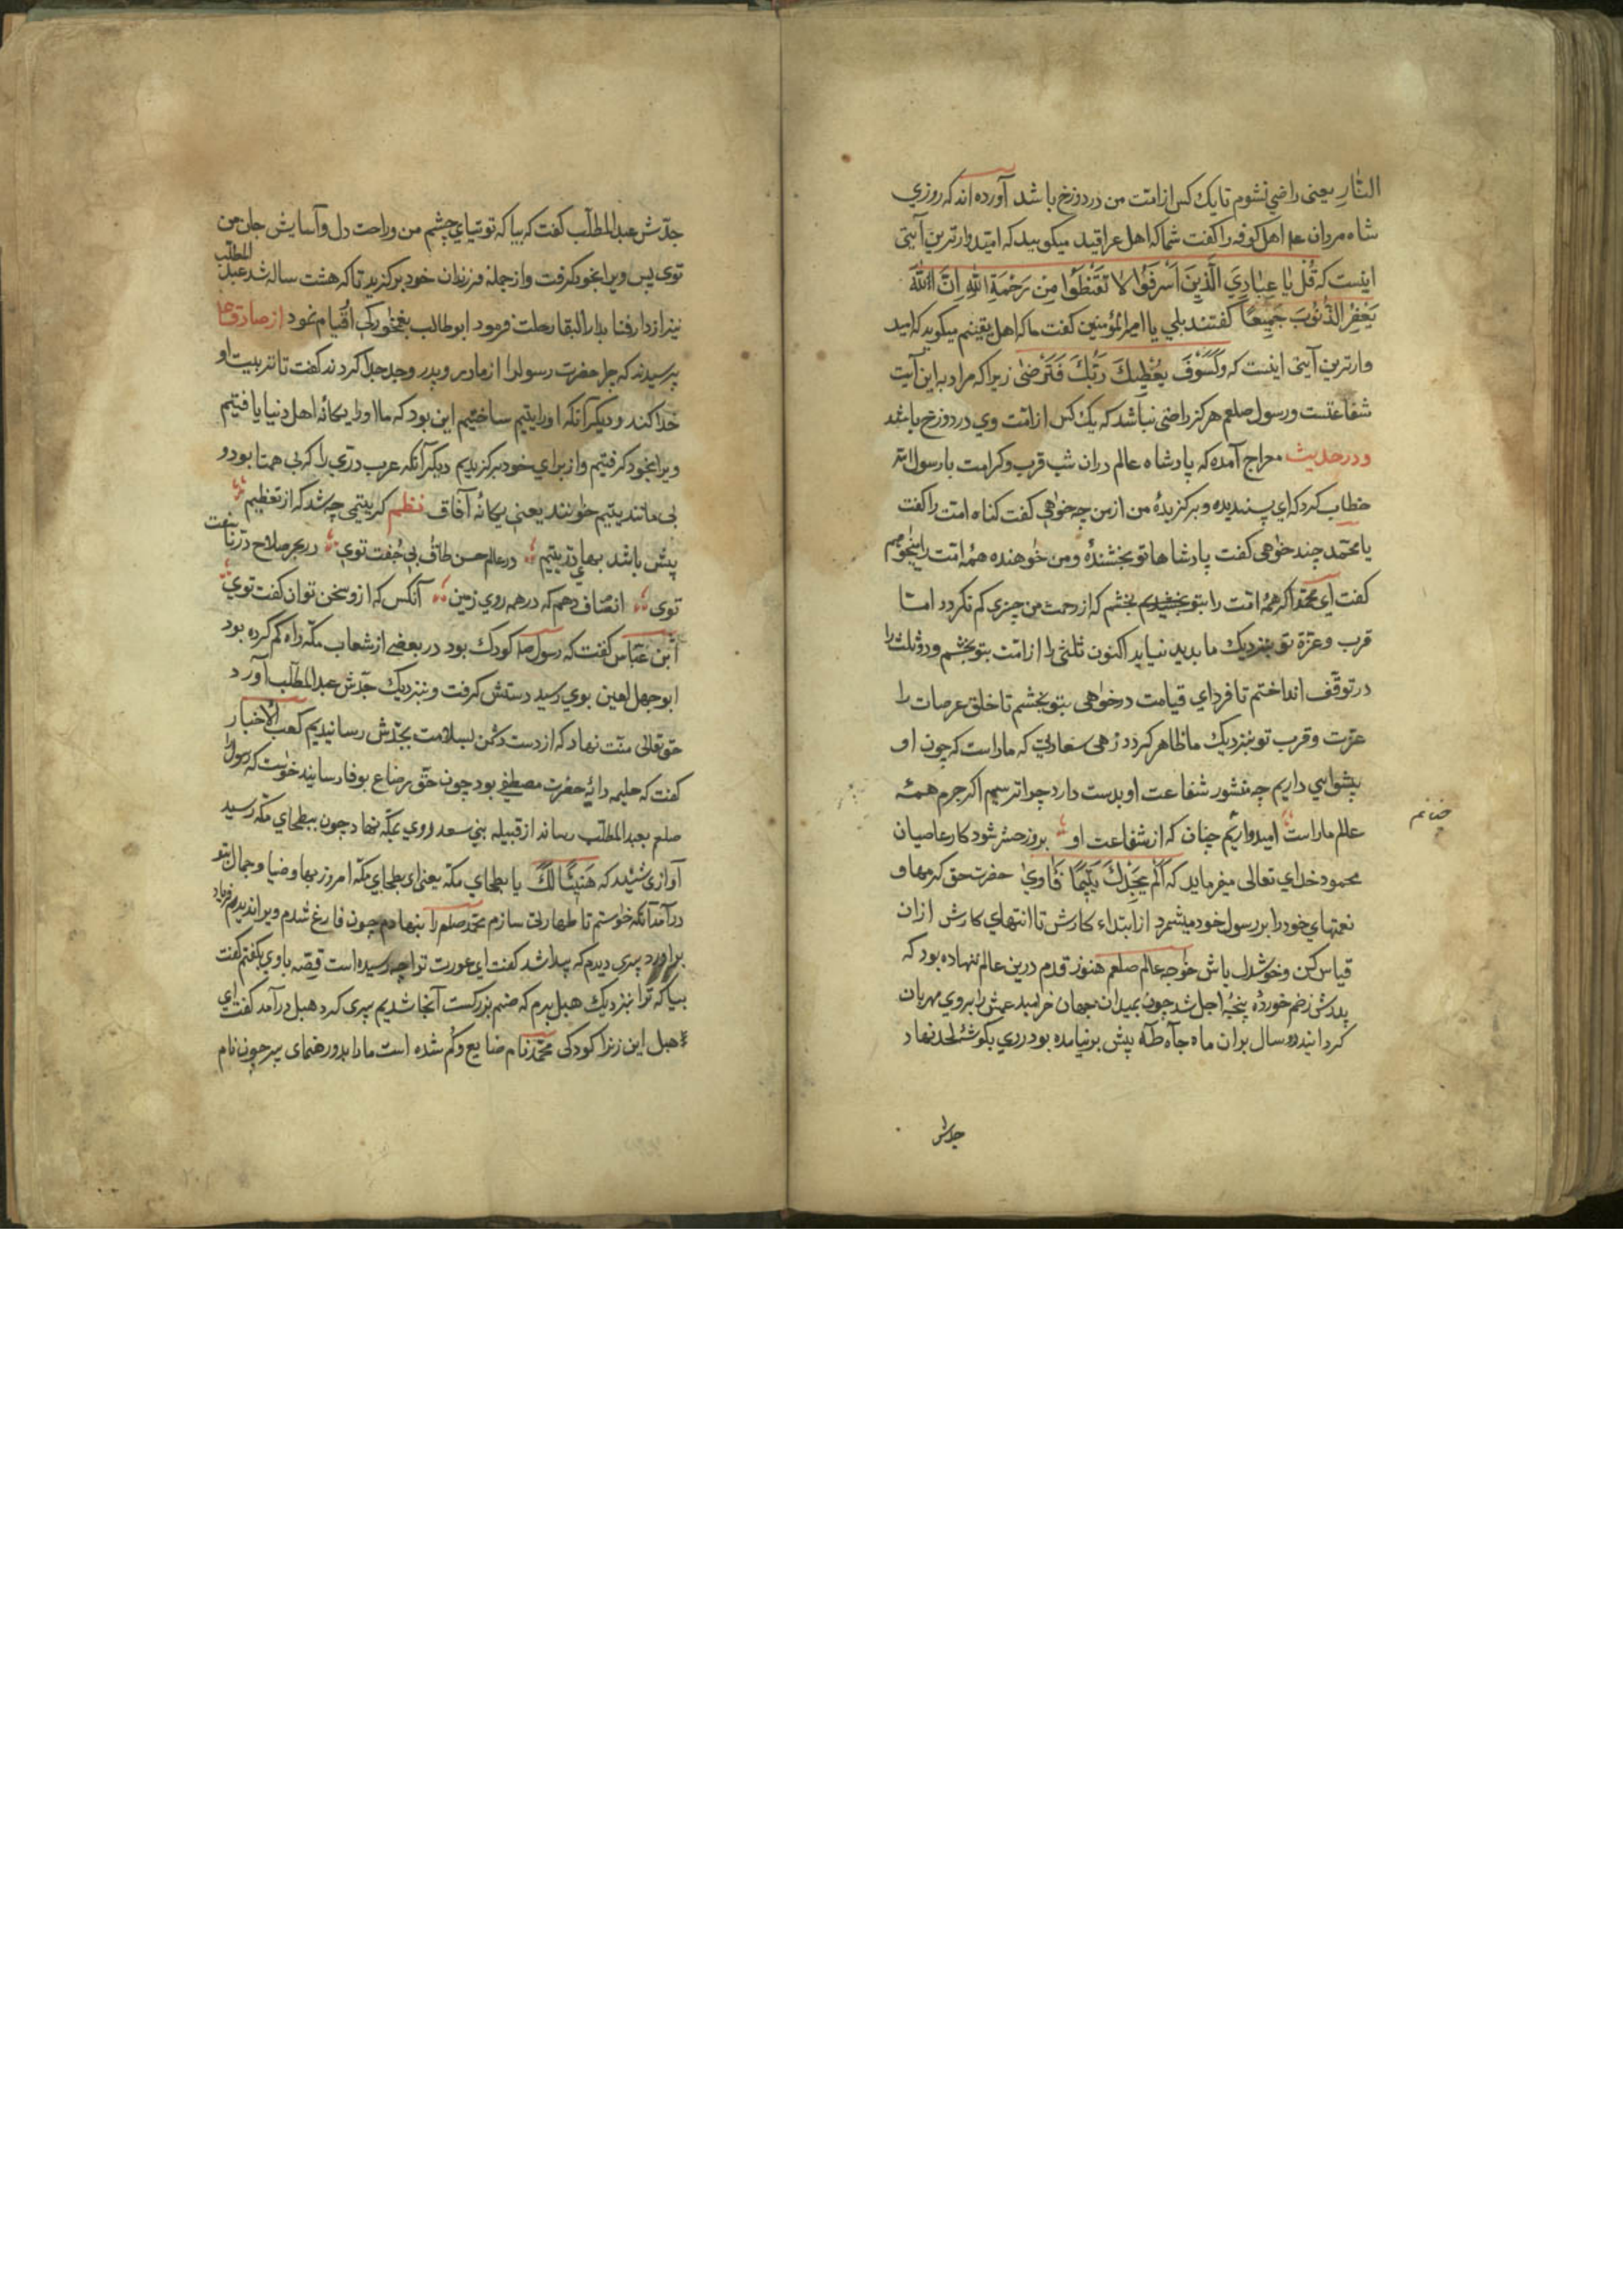 النّارِ یعنی راضي نشوم تا یك كس از امّت من در دوزخ با شد آورده اند كه روزي
شاه مردان علی اهل كوفه را كفت شما كه اهل عراقید میكویید كه امیّدوارترین آیتی
اینست كه قُل یٰا عِبٰادِيَ الَّذِینَ اَسْرَفُوٰا لا تَقْنَطُوٰا مِنْ رَحْمَةِ اللهِ اِنَّ اللهَ
یَغْفِرُ الذُنُوٰبَ جَمِیعًا كفتند بلي یا امیرالمؤمنین كفت ما كه اهل یقینم میكوید كه امید
وارترین آیتی اینست كه وَلَسَوْفَ یُعْطِیكَ رَبُّكَ فَتَرْضٰی زیراكه مراد به این آیت
شفاعتست ورسول صلعم هركز راضی نباشد كه یك كس از امّت وي در دوزخ باشد
ودر حدیث معراج آمده كه پادشاه عالم دران شب قرب وكرامت با رسول الله
خطاب كرد كه اي پسندیده وبركزیدهٔ من از من چه خوٰاهي كفت كناه امّت را كفت
یا محمّد چند خوٰاهی كفت پادشاها تو بخشندهٔ ومن خوٰاهنده همهٔ امّت را میخوٰاهم
كفت اي محمّد اكر همهٔ امّت را بتو بخشیدیم بخشم كه از رحمت من چیزي كم نكردد امّا
قرب وعزّة تو بنزدیك ما بدید نیاید اكنون ثلثی را از امّت بتو بخشم ودو ثلث را
در توقّف انداختم تا فرداي قیامت درخوٰاهی بتو بخشم تا خلق عرصات را
عزّت وقرب تو بنزدیك ما ظاهر كردد زهی سعادتی كه ماراست كه چون او
پیشوایي داریم چه منشور شفاعت او بدست دارد چرا ترسیم اكر جرم همهٔ
عالم ماراست امیدواریم چنان كه از شفاعت او بروز حشر شود كار عاصیان
محمود خداي تعالی میفرماید كه اَلَمْ یَجِدْكَ یَتِیمًا فَاٰويٰ حضرت حق كرمها و
نعمتهاي خود را بر رسول خود میشمرد از ابتداء كارش تا انتهاي كارش ازان
قیاس كن وخوشدل باش خوٰاجه عالم صلعم هنوز قدم درین عالم ننهاده بود كه
پدرش زخم خوردهٔ پنجهٔ اجل شد چون بمیدان جهان خرامید عمش را بروي مهربان
كردانید دو سال بران ماه جاه طه پیش برنیامده بود رري بكوشهٔ لحد نهاد
جدّش
جدّش عبدالمطلّب كفت كه بیا كه توتیاي چشم من وراحت دل وآسایش جان من
توی پس ویرا بخود كرفت واز جملهٔ فرزندان خود بركزید تا كه هشت ساله شد عبد المطلّب
نیز از دار فنا بدار البقا رحلت فرمود ابوطالب بغمخوٰركی او قیام نمود از صادق ع
پرسیدند كه چرا حضرت رسول را از مادر وپدر وجد جدا كردند كفت تا تربیت او
خدا كند ودیكر آنكه او را یتیم ساختیم این بود كه ما او را یكانه اهل دنیا یافتیم
ویرا بخود كرفتیم واز براي خود بركزیدیم دیكر آنكه عرب درّي را كه بی همتا بود و
بی مانند یتیم خوٰانند یعنی یكانهٔ آفاق نظم كر یتیمی چه شد كه از تعظیم
پیش باشد بهاي در یتیم در عالم حسن طاق بی جُفت توي در بحر صلاح در ناسفت
توی انصاف دهم كه در همه روي زمین آنكس كه ازو سخن توان كفت توي
ابن عبّاس كفت كه رسول صلعم كودك بود در بعضی از شعاب مكّه راه كم كرده بود
ابوجهل لعین بوي رسید دستش كرفت وبنزدیك جدّش عبدالمطلّب آورد
حق تعالی منّت نهاد كه از دست دشمن بسلامت بجدّش رسانیدیم كعب الاخبار
كفت كه حلیمه دایهٔ حضرت مصطفی بود چون حقّ رضاع بوفا رسانید خوٰاست كه رسول را
صلعم بعبدالمطلّب رساند از قبیله بنی سعد روي بمكّه نهاد چون ببطحاي مكّه رسید
آوازی شنید كه هَنِیئًا لَكَ یا بطحاي مكّه یعنی اي بطحاي مكّه امروز بها وضیا وجمال بتو
درآمد آنكه خوٰستم تا طهارتی سازم محمّد صلعم را بنهادم چون فارغ شدم ویرا ندیدم فریاد
براورد پیري دیدم كه پیدا شد كفت اي عورت ترا چه رسیده است قصّه باوي بكفتم كفت
بیا كه ترا بنزدیك هبل برم كه صنم بزركست آنجا شدیم پیری كرد هبل درآمد كفت اي
هبل این زنرا كودكی محمّد نام ضایع وكم شده است مارا بدو رهنمای پیر چون نام